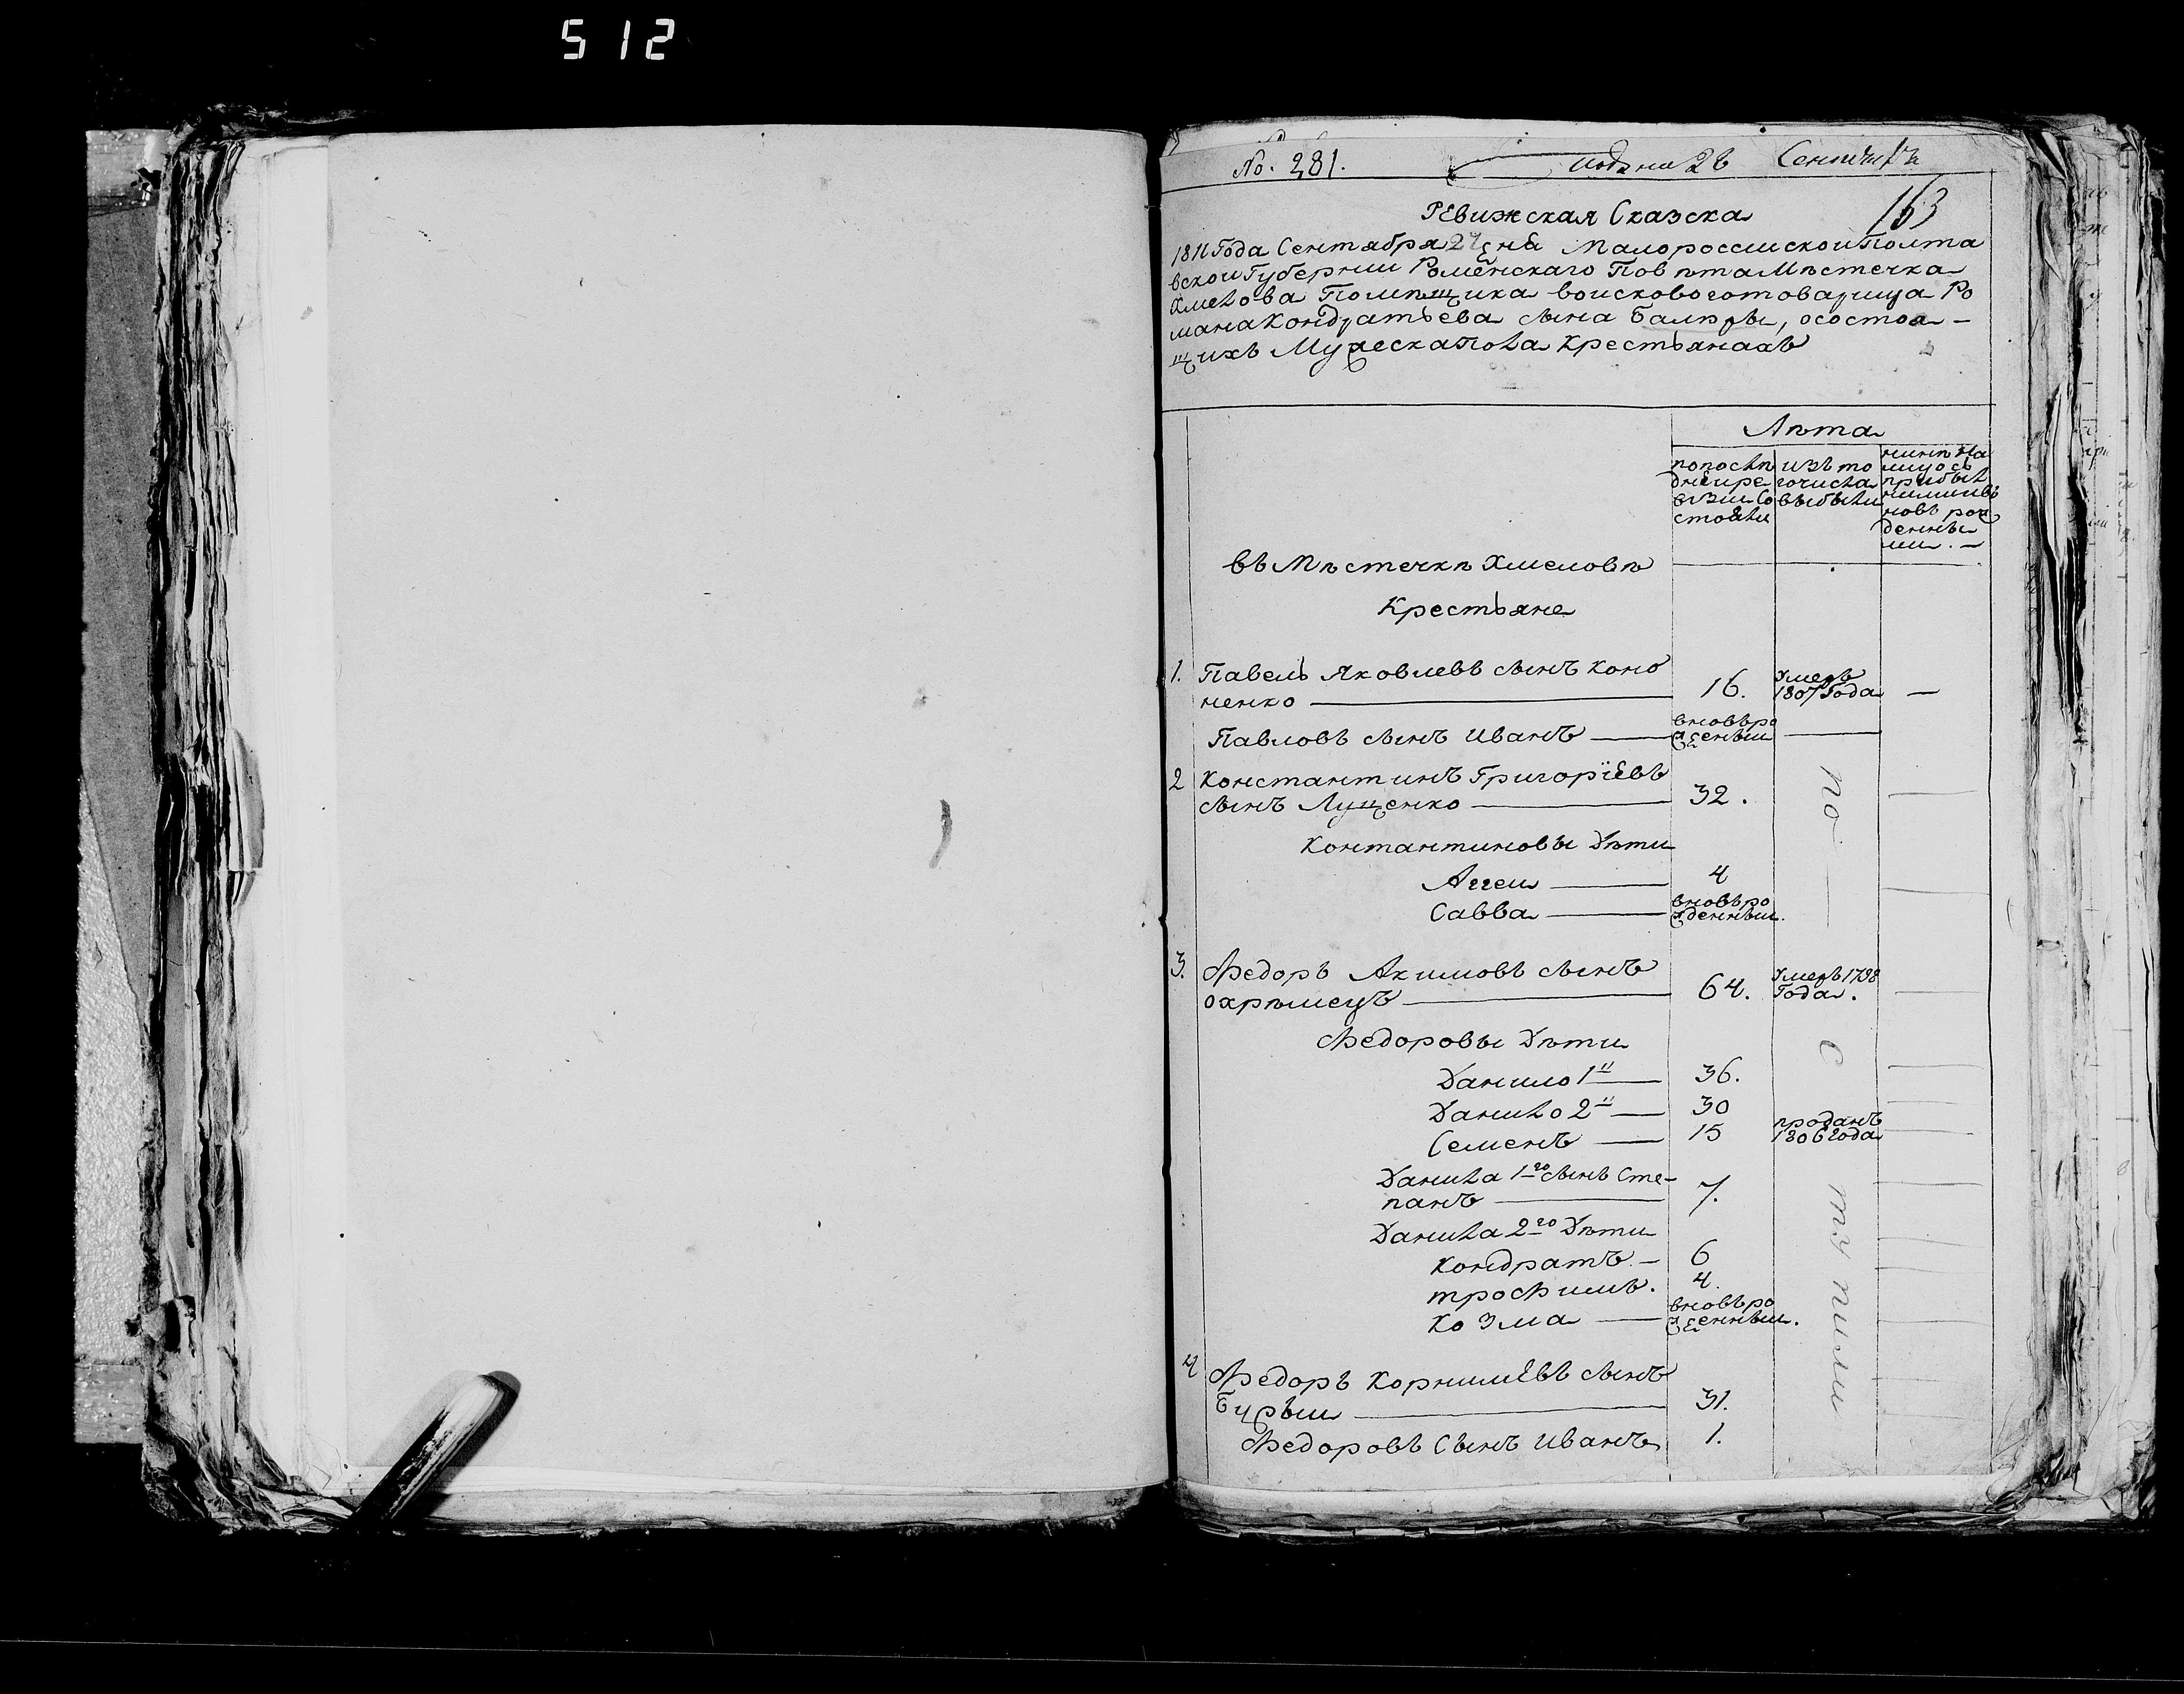 512
No. 281. подана 26 Сентября
163
Ревижская Сказска
1811 Года Сентября 27 дня Малороссискои Полта
вскои Губернии Роменскаго Повѣта Мѣстечка
Хмелова Помѣщика воискового товарища Ро
мана Кондратьева сына Балѣры, о состоя-
щихъ Мужеска пола крестьянахъ
Лѣта
по послѣ
дней ре
визии Со
стояли
изъ то
го числа
выбыли
нынѣ на
лицо съ
прибыл
ними и въ
новь рож
денны
ми. —
въ Мѣстечкѣ Хмеловѣ
Крестьяне
1. Павелъ Яковлевъ сынъ Коно
ненко — 16. Умеръ 1807 Года —
Павловъ сынъ Иванъ — вновь ро
жденныи —
2 Константинъ Григорїевъ
сынъ Лущенко — 32.
Контантиновы Дѣти
Аггеи — 4
Савва — вновь ро
жденныи.
3. Федоръ Акимовъ сынъ
охрѣмецъ — 64. Умеръ 1798
Года.
Федоровы Дѣти
Данило 1й — 36.
Данило 2й — 30
Семенъ — 15 проданъ
1806 года
Данила 1го сынъ Сте-
панъ — 7.
Данила 2го Дѣти
Кондратъ. — 6
трофимъ. 4.
Козма — вновь ро
жденныи.
4 Федоръ Корнилїевъ сынъ
Бурыи — 31.
Федоровъ Сынъ Иванъ 1.
по
с
ту пили